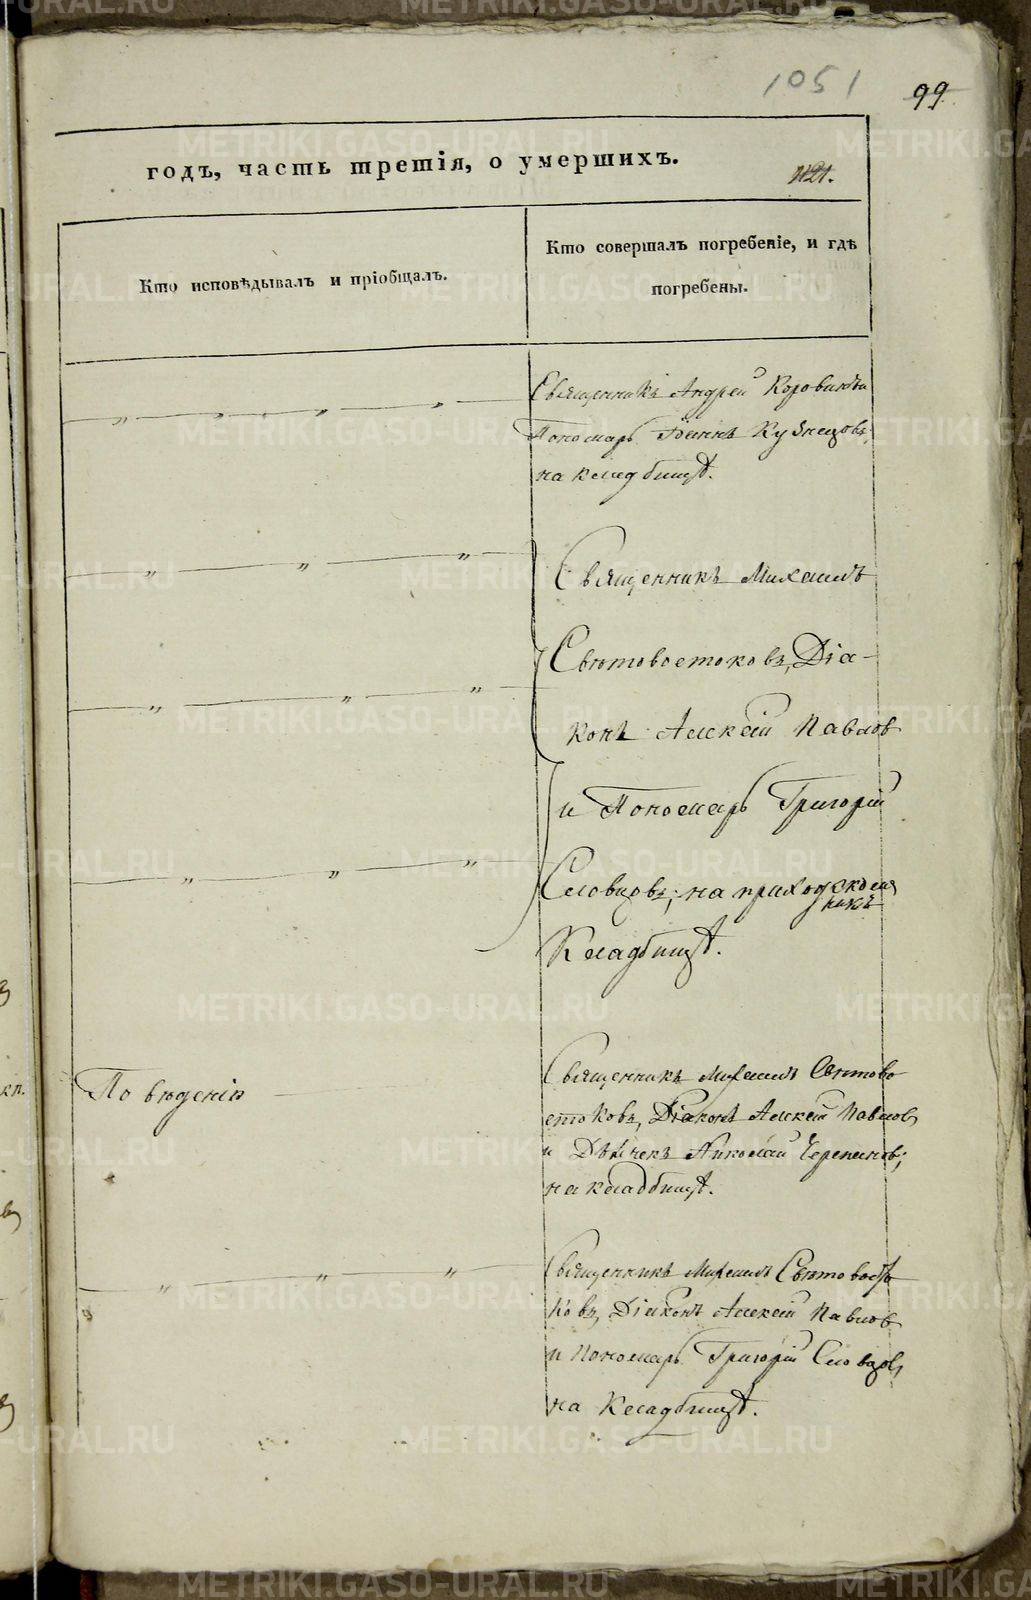 1051
99
годъ, часть третія, о умершихъ.
Кто исповѣдывалъ и пріобщалъ.
Кто совершалъ погребеніе, и гдѣ
погребены.
Священникъ Андрей Коровинъ и
Пономарь Іоаннъ Кузнецовъ,
на кладбищѣ.
Священникъ Михаилъ
Свѣтовостоковъ, Діа-
конъ Алексій Павлов
и Пономарь Григорій
Словцовъ; на приходскомъ
Кладбищѣ.
По вѣденію
Священникъ Михаилъ Свѣтово
стоковъ, Діаконъ Алексій Павловъ
и Дьячекъ Николай Черепановъ;
на кладбищѣ.
Священникъ Михаилъ Свѣтовосто
ковъ, Діаконъ Алексій Павловъ
и Пономарь Григорій Словцовъ,
на Кладбищѣ.
METRIKI.GASO-URAL.RU